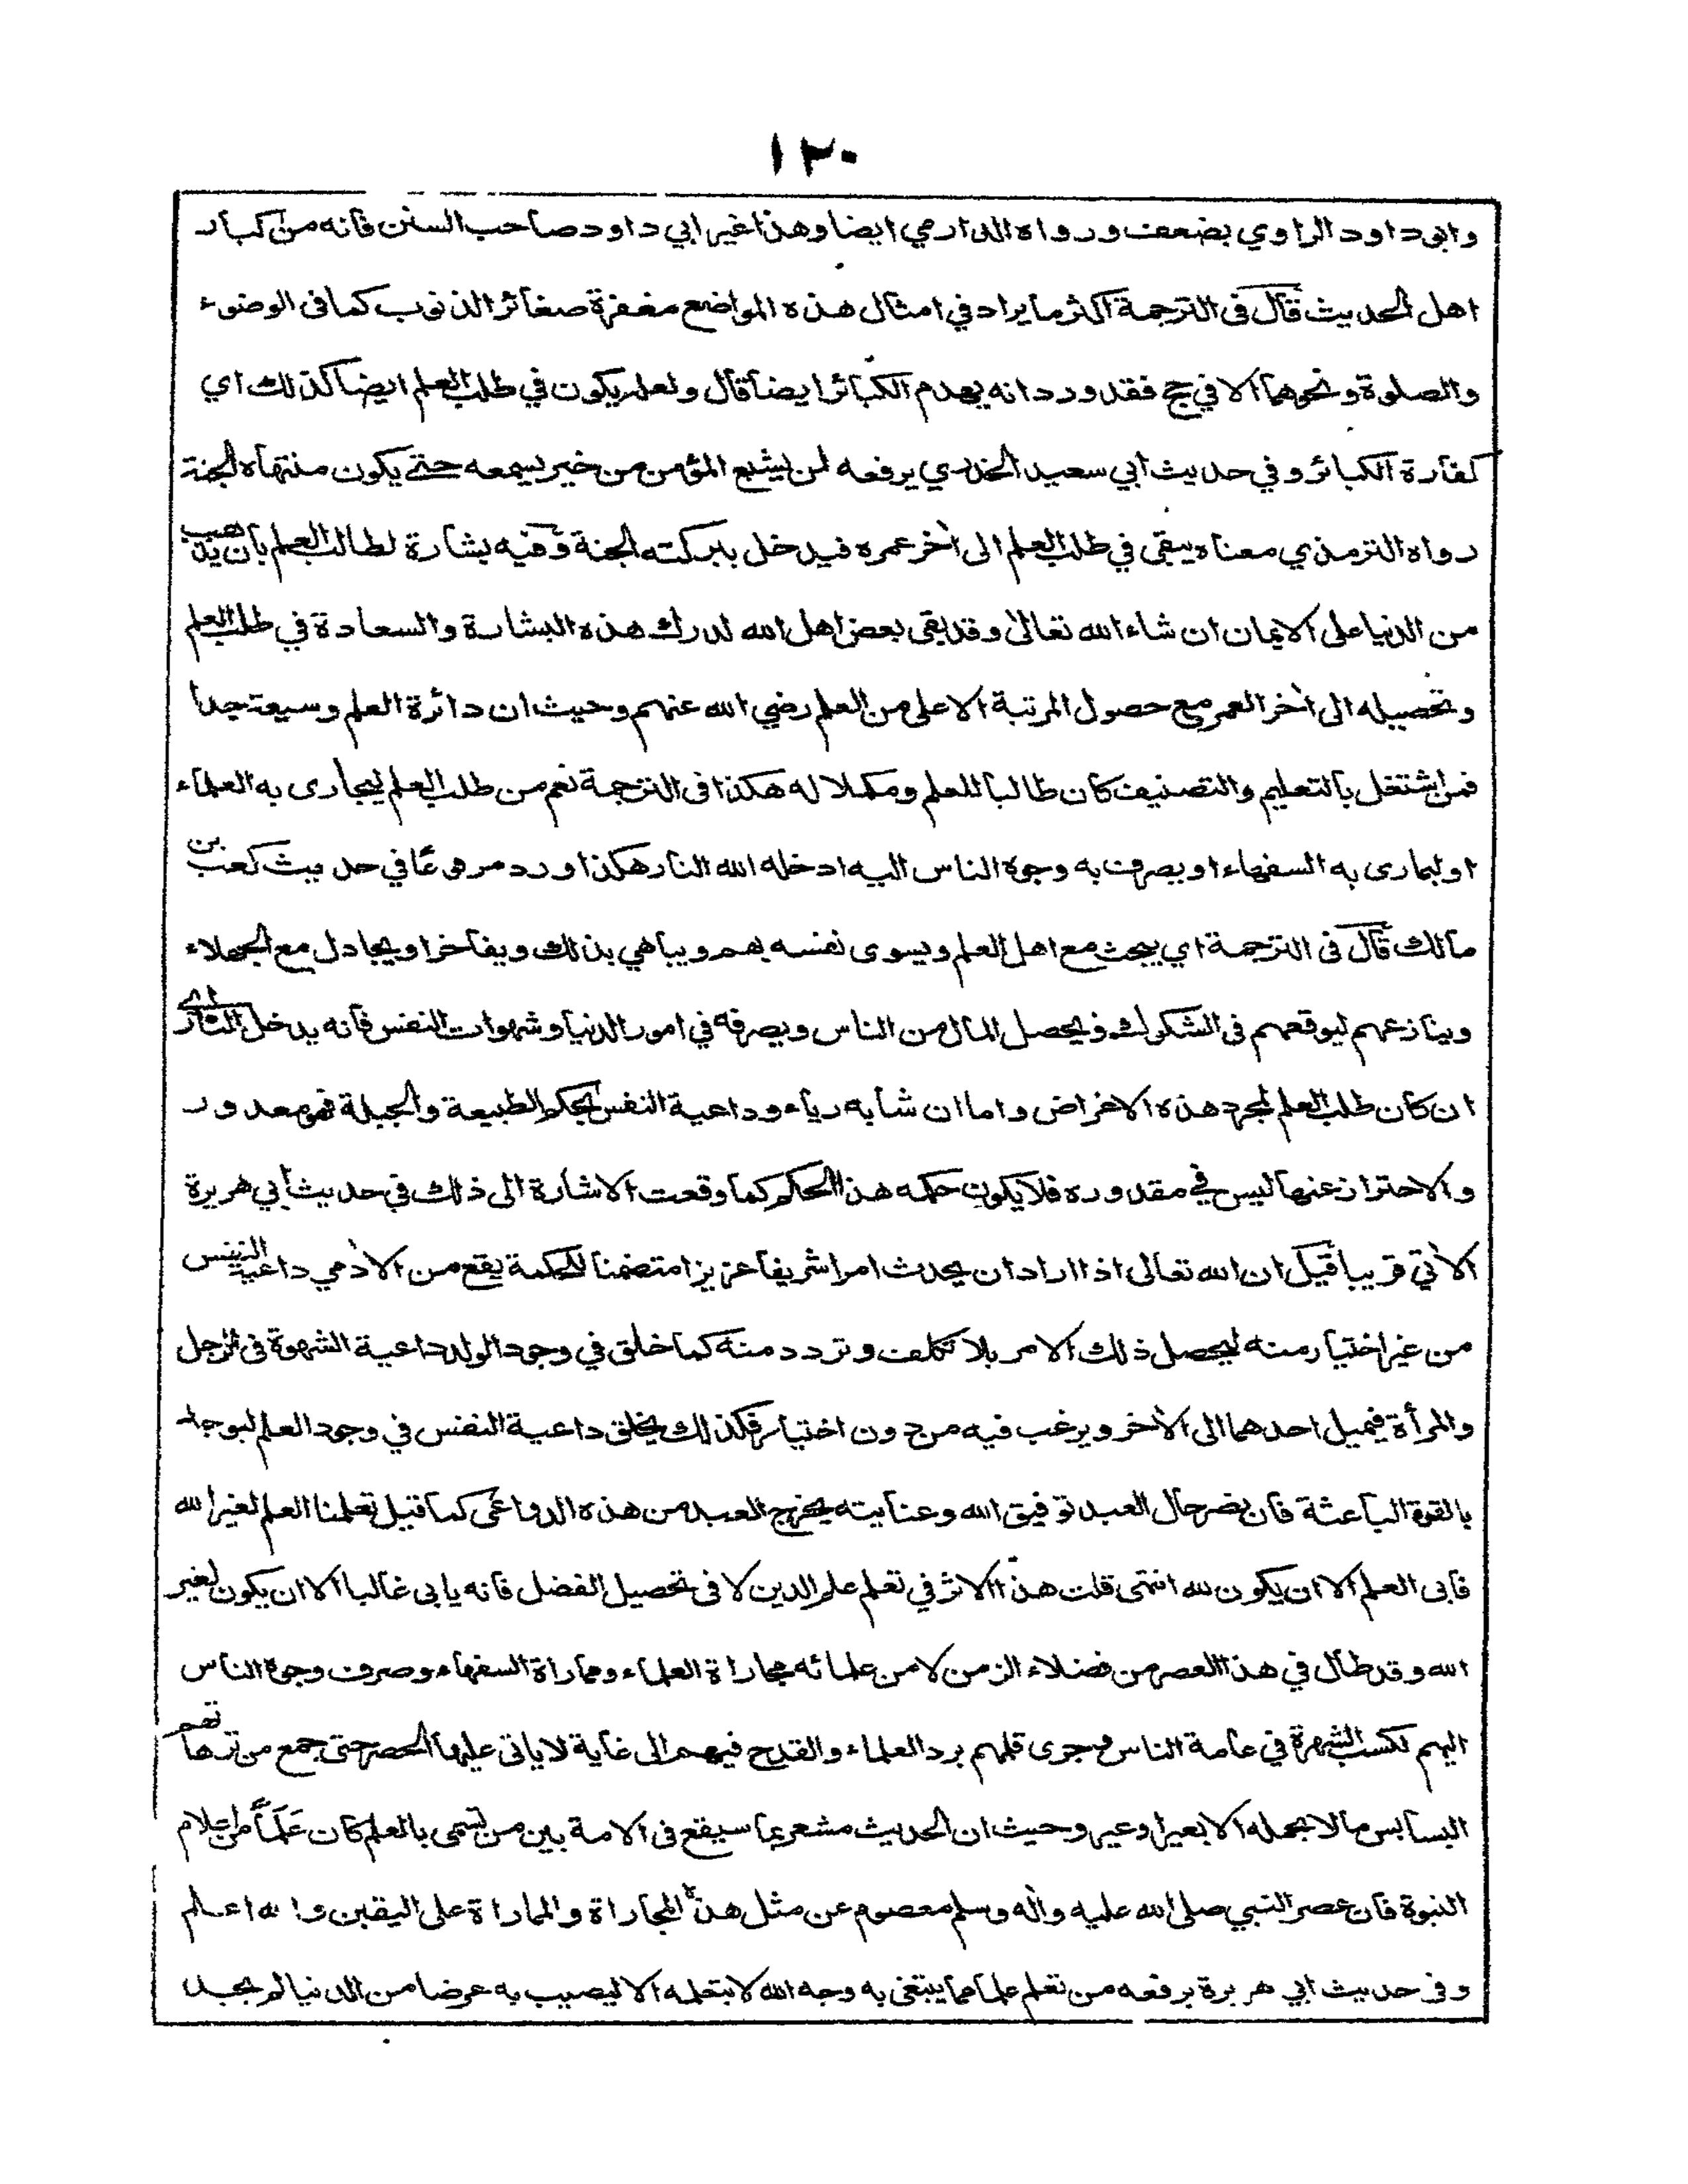 ١٢٠
وابو داود الراوي يضعف ورواه الدارمي ايضا وهذا غير ابي داود صاحب السنن فانه من كبار
اهل الحديث قال في الترجمة اكثر ما يراد في امثال هذه المواضع مغفرة صغائر الذنوب كما في الوضوء
والصلوة ونحوهما الا في حج فقد ورد انه يهدم الكبائر ايضا قال ولعله يكون في طلب العلم ايضا كذلك اي
كفارة الكبائر وفي حديث ابي سعيد الخدري يرفعه لن يشبع المؤمن من خير يسمعه حتى يكون منتهاه الجنة
رواه الترمذي معناه يبقى في طلب العلم الى اخر عمره فيدخل ببركته الجنة وفيه بشارة لطالب العلم بان يذهب
من الدنيا على الايمان ان شاء الله تعالى وقد بقى بعض اهل الله لدرك هذه البشارة والسعادة في طلب العلم
وتحصيله الى اخر العمر مع حصول المرتبة الاعلى من العلم رضي الله عنهم وحيث ان دائرة العلم وسيعة جدا
فمن اشتغل بالتعليم والتصنيف كان طالبا للعلم ومكملا له هكذا في الترجمة نعم من طلب العلم ليجارى به العلماء
او ليمارى به السفهاء او يصرف به وجوه الناس اليه ادخله الله النار هكذا ورد مرفوعا في حديث كعب بن
مالك قال في الترجمة اي يبحث مع اهل العلم ويسوى نفسه بهم ويباهي بذلك ويفاخر او يجادل مع الجهلاء
وينازعهم ليوقعهم في الشكوك ويحصل المال من الناس ويصرفه في امور الدنيا وشهوات النفس فانه يدخل النار
ان كان طلب العلم لمجرد هذه الاغراض واما ان شابه رياء وداعية النفس بحكم الطبيعة والجبلة فهو معذور
والاحتراز عنها ليس في مقدوره فلا يكون حكمه هذا الحكم كما وقعت الاشارة الى ذلك في حديث ابي هريرة
الاتي قريبا قيل ان الله تعالى اذا اراد ان يحدث امرا شريفا عزيزا متضمنا للحكمة يقع من الادمي داعية النفس
من غير اختيار منه ليحصل ذلك الامر بلا تكلف وتردد منه كما خلق في وجود الولد داعية الشهوة في الرجل
والمرأة فيميل احدهما الى الاخر ويرغب فيه من دون اختيار فكذلك يخلق داعية النفس في وجود العلم ليوجد
بالقوة الباعثة فان يضر حال العبد توفيق الله وعنايته يخرج العبد من هذه الدواعى كما قيل تعلمنا العلم لغير الله
فابى العلم الا ان يكون لله انتهى قلت هذا الاثر في تعلم علم الدين لا في تحصيل الفضل فانه يابى غالبا الا ان يكون لغير
الله وقد طال في هذا العصر من فضلاء الزمن لا من علمائه مجاراة العلماء ومماراة السفهاء وصرف وجوه الناس
اليهم لكسب الشهرة في عامة الناس فجرى قلمهم برد العلماء والقدح فيهم الى غاية لا ياتى عليها الحصر حتى جمع من ترهاتهم
البسابس ما لا يحمله الا بعير او عير وحيث ان الحديث مشعر بما سيقع في الامة بين من تسمى بالعلم كان عَلَماً من اعلام
النبوة فان عصر النبي صلى الله عليه واله وسلم معصوم عن مثل هذه المجاراة والمماراة على اليقين والله اعلم
وفي حديث ابي هريرة يرفعه من تعلم علما مما يبتغى به وجه الله لا يتعلمه الا ليصيب به عرضا من الدنيا لم يجد